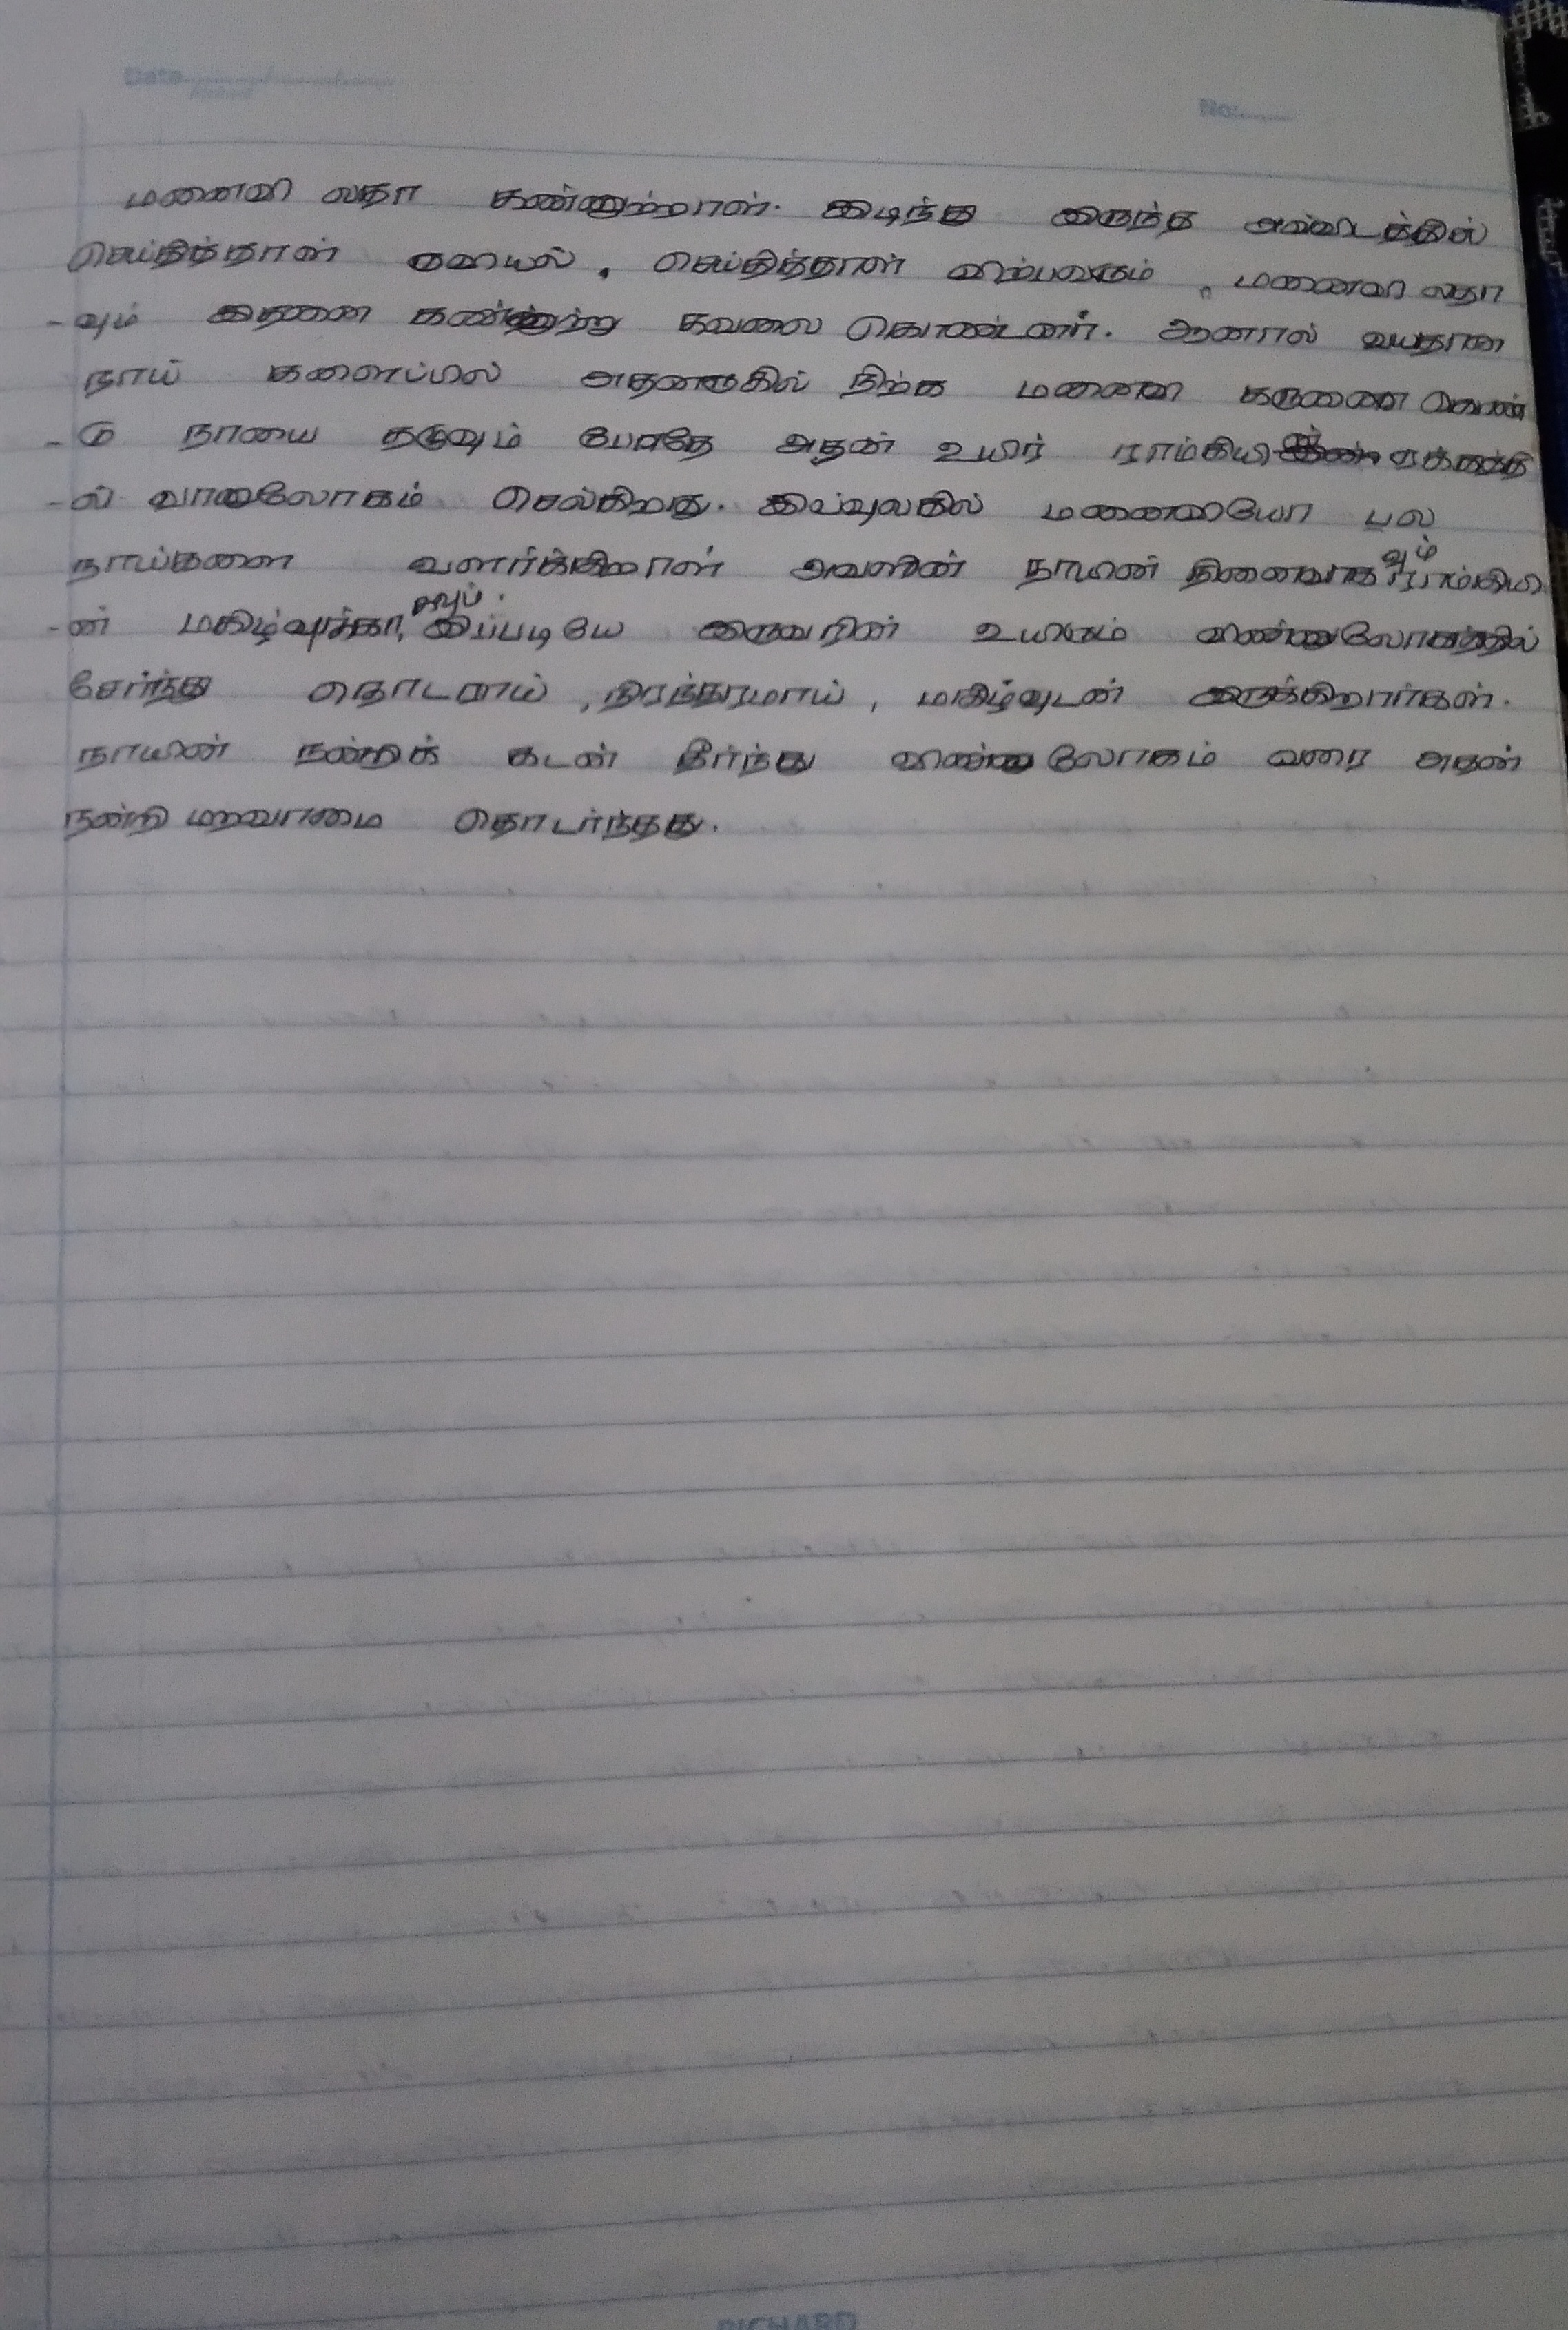 Date
No:
மனைவி லதா கண்ணுற்றாள். இடிந்து இருந்த அவ்விடத்தில்
செய்தித்தாள் குவியல், செய்தித்தாள் விற்பவரும், மனைவி லதா
-வும் இதனை கண்ணுற்று கவலை கொண்டனர். ஆனால் வயதான
நாய் களைப்பில் அதனருகில் நிற்க மனைவி கருணை கொண்
-டு நாயை தடுவும் போதே அதன் உயிர் ராம்கியி
-ல் வானலோகம் செல்கிறது. இவ்வுலகில் மனைவியோ பல
நாய்களை வளர்க்கிறாள் அவளின் நாயின் நினைவாகவும் ராம்கியி
-ன் மகிழ்வுக்காகவும். இப்படியே இருவரின் உயிரும் விண்ணுலோகத்தில்
சேர்ந்து தொடராய், நிரந்தரமாய், மகிழ்வுடன் இருக்கிறார்கள்.
நாயின் நன்றிக் கடன் தீர்ந்து விண்ணுலோகம் வரை அதன்
நன்றி மறவாமை தொடர்ந்தது.
RICHARD